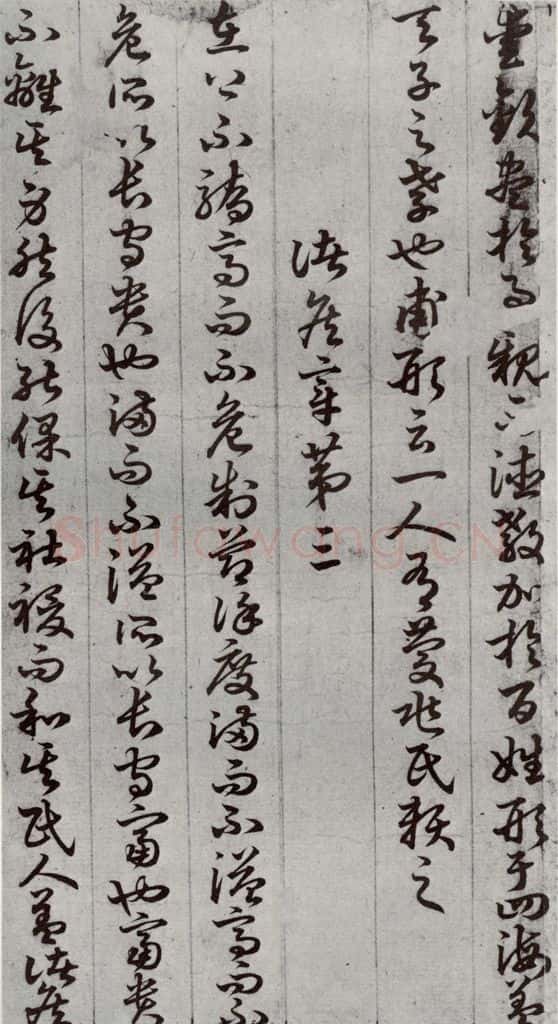 愛敬盡於事親而德教加於百姓形于四海蓋
天子之孝也甫形云一人有慶兆民賴之
諸侯章第三
在上不驕高而不危制節謹度滿而不溢高而不
危所以長守貴也滿而不溢所以長守富也富貴
不離其身然後能保其社稷而和其民人蓋諸侯
Shufawang.CN